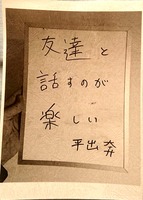 友達と
話すのが
楽しい
平出 奔